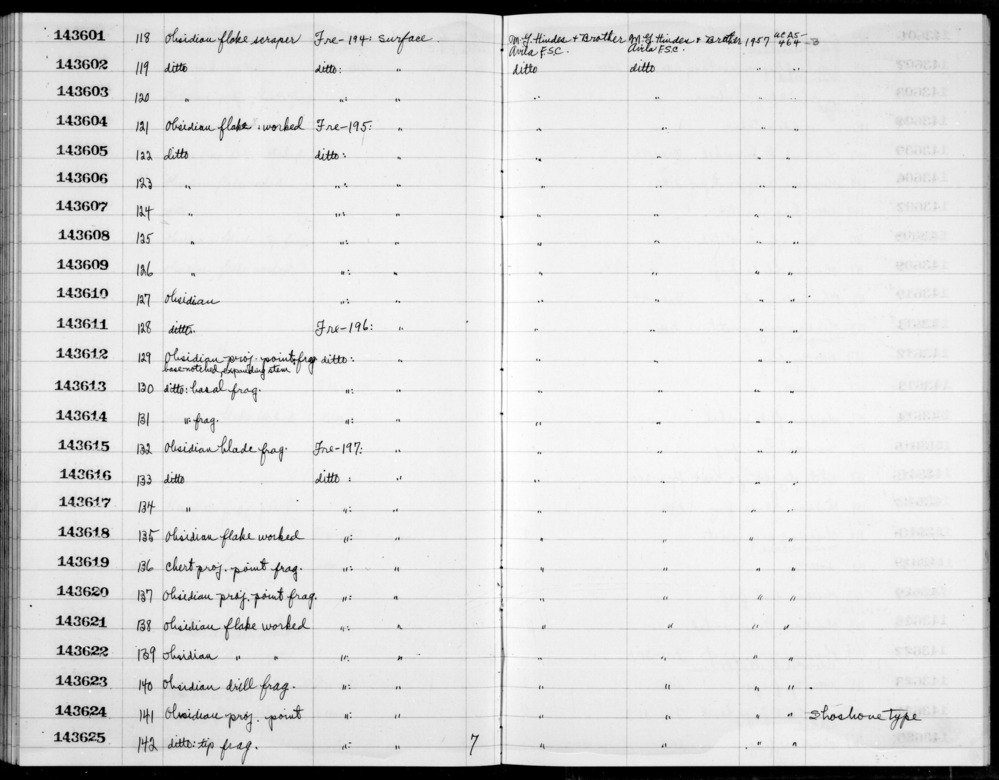 143601 118 Obsidian flake scraper Fre-194: Surface M.Y. Hindes + Brother Avila F.S.C. M.Y. Hindes + Brother Avila F.S.C. 1957 UCAS-464 -3
143602 119 ditto ditto: " ditto ditto " "
143603 120 " ": " " " " "
143604 121 Obsidian flake, worked Fre-195: " " " " "
143605 122 ditto ditto: " " " " "
143606 123 " ": " " " " "
143607 124 " ": " " " " "
143608 125 " ": " " " " "
143609 126 " ": " " " " "
143610 127 Obsidian ": " " " " "
143611 128 ditto. Fre-196: " " " " "
143612 129 Obsidian proj. point, frag ditto: " " " " "
base-notched, expanding stem
143613 130 ditto: basal frag. ": " " " " "
143614 131 ": frag. ": " " " " "
143615 132 Obsidian blade frag. Fre-197: " " " " "
143616 133 ditto ditto: " " " " "
143617 134 " ": " " " " "
143618 135 Obsidian flake worked ": " " " " "
143619 136 Chert proj. point frag. ": " " " " "
143620 137 Obsidian proj. point frag. ": " " " " "
143621 138 Obsidian flake worked ": " " " " "
143622 139 Obsidian " " ": " " " " "
143623 140 Obsidian drill frag. ": " " " " "
143624 141 Obsidian proj. point ": " " " " " Shoshone type
143625 142 ditto: tip frag. ": " 7 " " " "